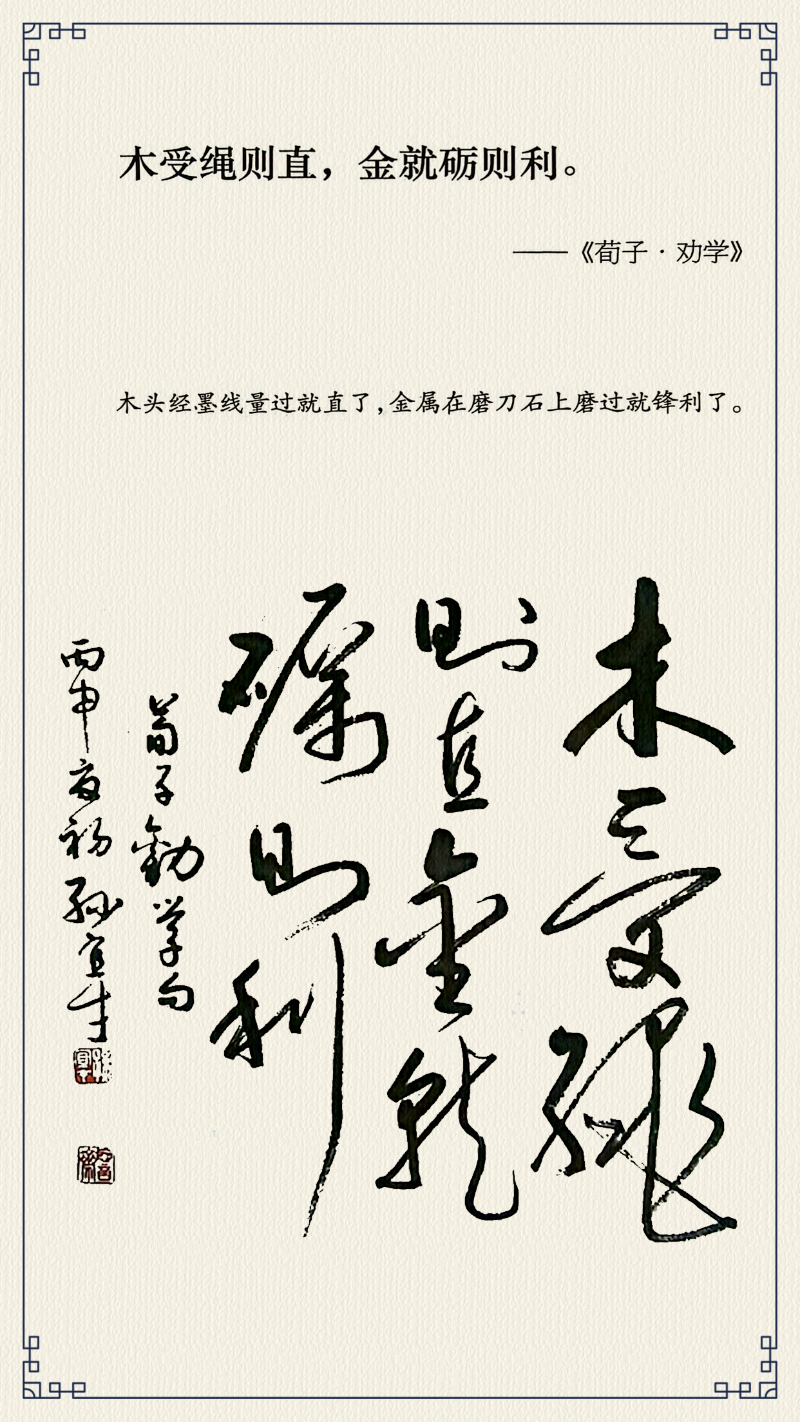 木受绳则直，金就砺则利。
——《荀子·劝学》
木头经墨线量过就直了，金属在磨刀石上磨过就锋利了。
木受繩
則直金就
礪則利
荀子勸学句
丙申夏初孫宜才